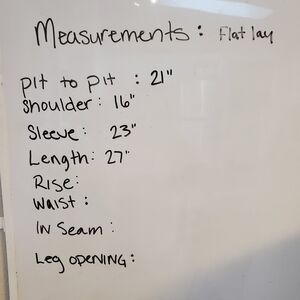 Measurements: Flat lay
Pit to pit : 21"
Shoulder: 16"
Sleeve: 23"
Length: 27"
Rise:
Waist:
In Seam:
Leg OPENING: